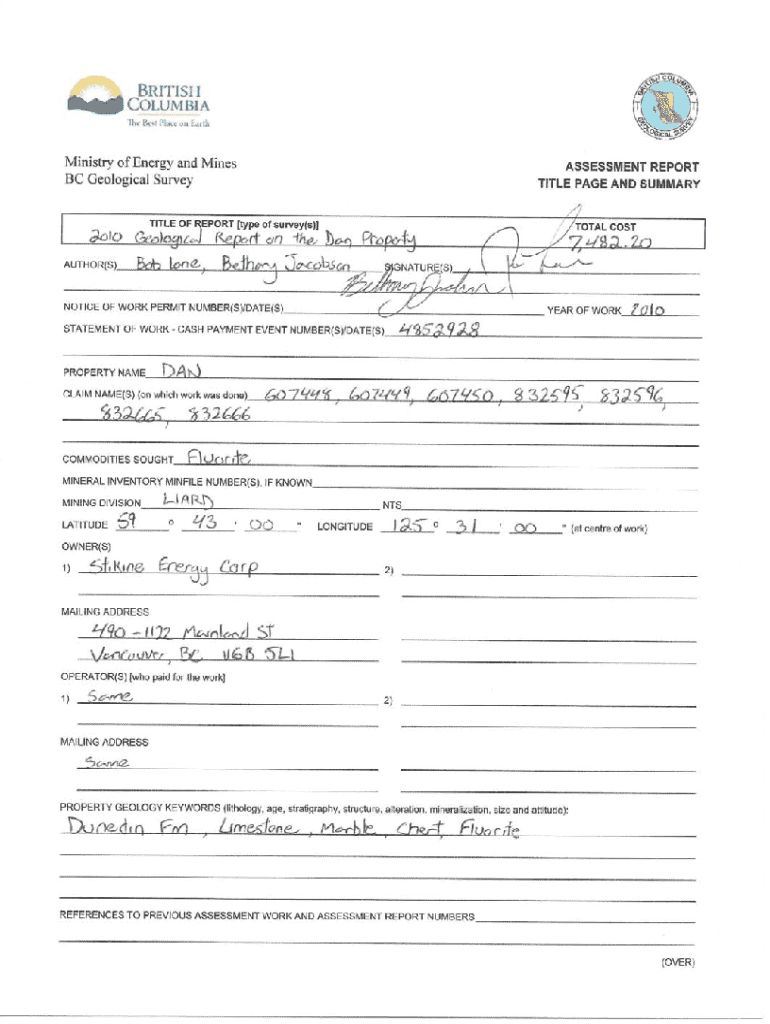 BRITISH
COLUMBIA
The Best Place on Earth
BRITISH COLUMBIA
GEOLOGICAL SURVEY
Ministry of Energy and Mines
BC Geological Survey
ASSESSMENT REPORT
TITLE PAGE AND SUMMARY
TITLE OF REPORT [type of survey(s)]
2010 Geological Report on the Dan Property
TOTAL COST
7,482.20
AUTHOR(S) Bob Lane, Bethany Jacobson SIGNATURE(S)
NOTICE OF WORK PERMIT NUMBER(S)/DATE(S) YEAR OF WORK 2010
STATEMENT OF WORK - CASH PAYMENT EVENT NUMBER(S)/DATE(S) 4852928
PROPERTY NAME DAN
CLAIM NAME(S) (on which work was done) 607448, 607449, 607450, 832595, 832596,
832665, 832666
COMMODITIES SOUGHT Fluorite
MINERAL INVENTORY MINFILE NUMBER(S), IF KNOWN
MINING DIVISION LIARD NTS
LATITUDE 59 ° 43 ' 00 " LONGITUDE 125 ° 31 ' 00 " (at centre of work)
OWNER(S)
1) Stikine Energy Corp 2)
MAILING ADDRESS
490 - 1122 Mainland ST
Vancouver, BC V6B 5L1
OPERATOR(S) [who paid for the work]
1) Same 2)
MAILING ADDRESS
Same
PROPERTY GEOLOGY KEYWORDS (lithology, age, stratigraphy, structure, alteration, mineralization, size and attitude):
Dunedin Fm, Limestone, Marble, Chert, Fluorite
REFERENCES TO PREVIOUS ASSESSMENT WORK AND ASSESSMENT REPORT NUMBERS
(OVER)